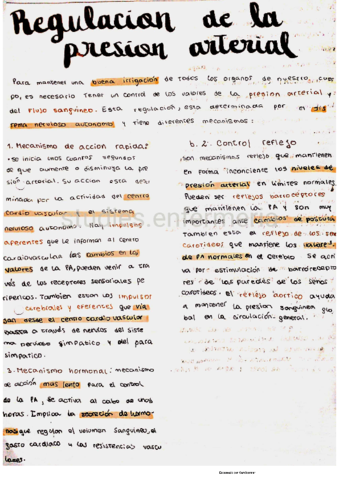 Regulacion de la
presion arterial
Para mantener una buena irrigación de todos los organos de nuestro cuer
po, es necesario tener un control de los valores de la presion arterial y
del flujo sanguineo. Esta regulación, esta determinada por el sis
tema nervioso autonomo y tiene diferentes mecanismos:
1. Mecanismo de accion rapida:
se inicia unos cuantos segundos
se que aumente o disminuya la pre
sion arterial. Su acción esta deter
minada por la actividad del centro
cardio vascular del sistema
nervioso autonomo. Hay impulsos
aferentes que le informan al centro
cardiovascular las cambios en los
valores de la PA, pueden venir a tra
vés de los receptores sensoriales pe
ripericos. Tambien estan los impulsos
cerebrales y eferentes que via
jan desde el centro cardio vascular
bassa a través de nervios del siste
ma nervioso simpatico y del para
simpatico.
3. Mecanismo hormonal: mecanismo
de acción mas lento para el control
de la PA, se activa al cabo de unas
horas. Implica la secreción de hormo
nas que regulan el volumen sanguineo, el
gasto cardiaco y las resistencias vascu
lares.
b. 2. Control reflejo
son mecanismos reflejo que mantienen
en forma inconciente los niveles de
presion arterial en limites normales
Pueden ser reflejos barorceptores
que mantienen la PA y son muy
importantes ante cambios de postura
Tambien esta el reflejo de los senos
carotideos que mantiene los valores
de PA normales en el cerebro. Se acti
va por estimulación de barorrecepto
res de las paredes de los senos
carotideos. El reflejo aortico ayuda
a mantener la presion sanguinea glo
bal en la circulación general.